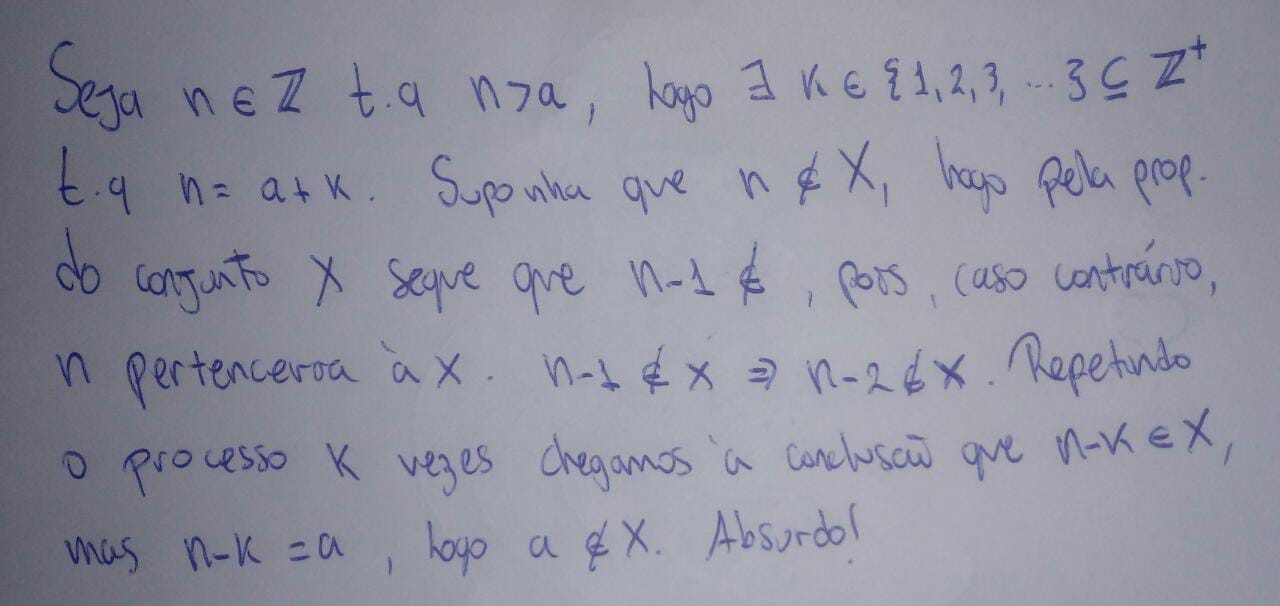 Seja n ∈ ℤ t.q n>a, logo ∃ K ∈ {1,2,3, ...} ⊆ ℤ⁺
t.q n = a+K. Suponha que n ∉ X, logo pela prop.
do conjunto X segue que n-1 ∉, pois, caso contrário,
n pertenceria à X. n-1 ∉ X ⇒ n-2 ∉ X. Repetindo
o processo K vezes chegamos à conclusão que n-K ∈ X,
mas n-K = a, logo a ∉ X. Absurdo!